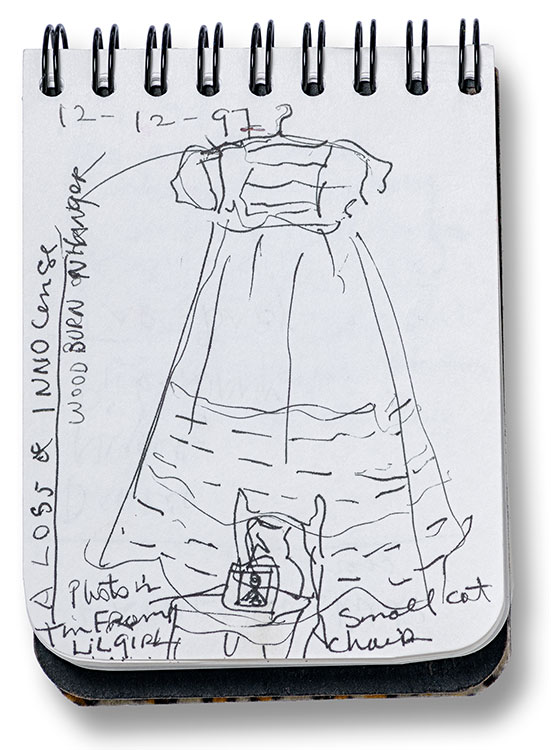 12-12-97
WOOD BURN ON HANGER
A LOSS of INNOCense
Photo in
tin FRAME
LiL GIRL
Small cat
chair